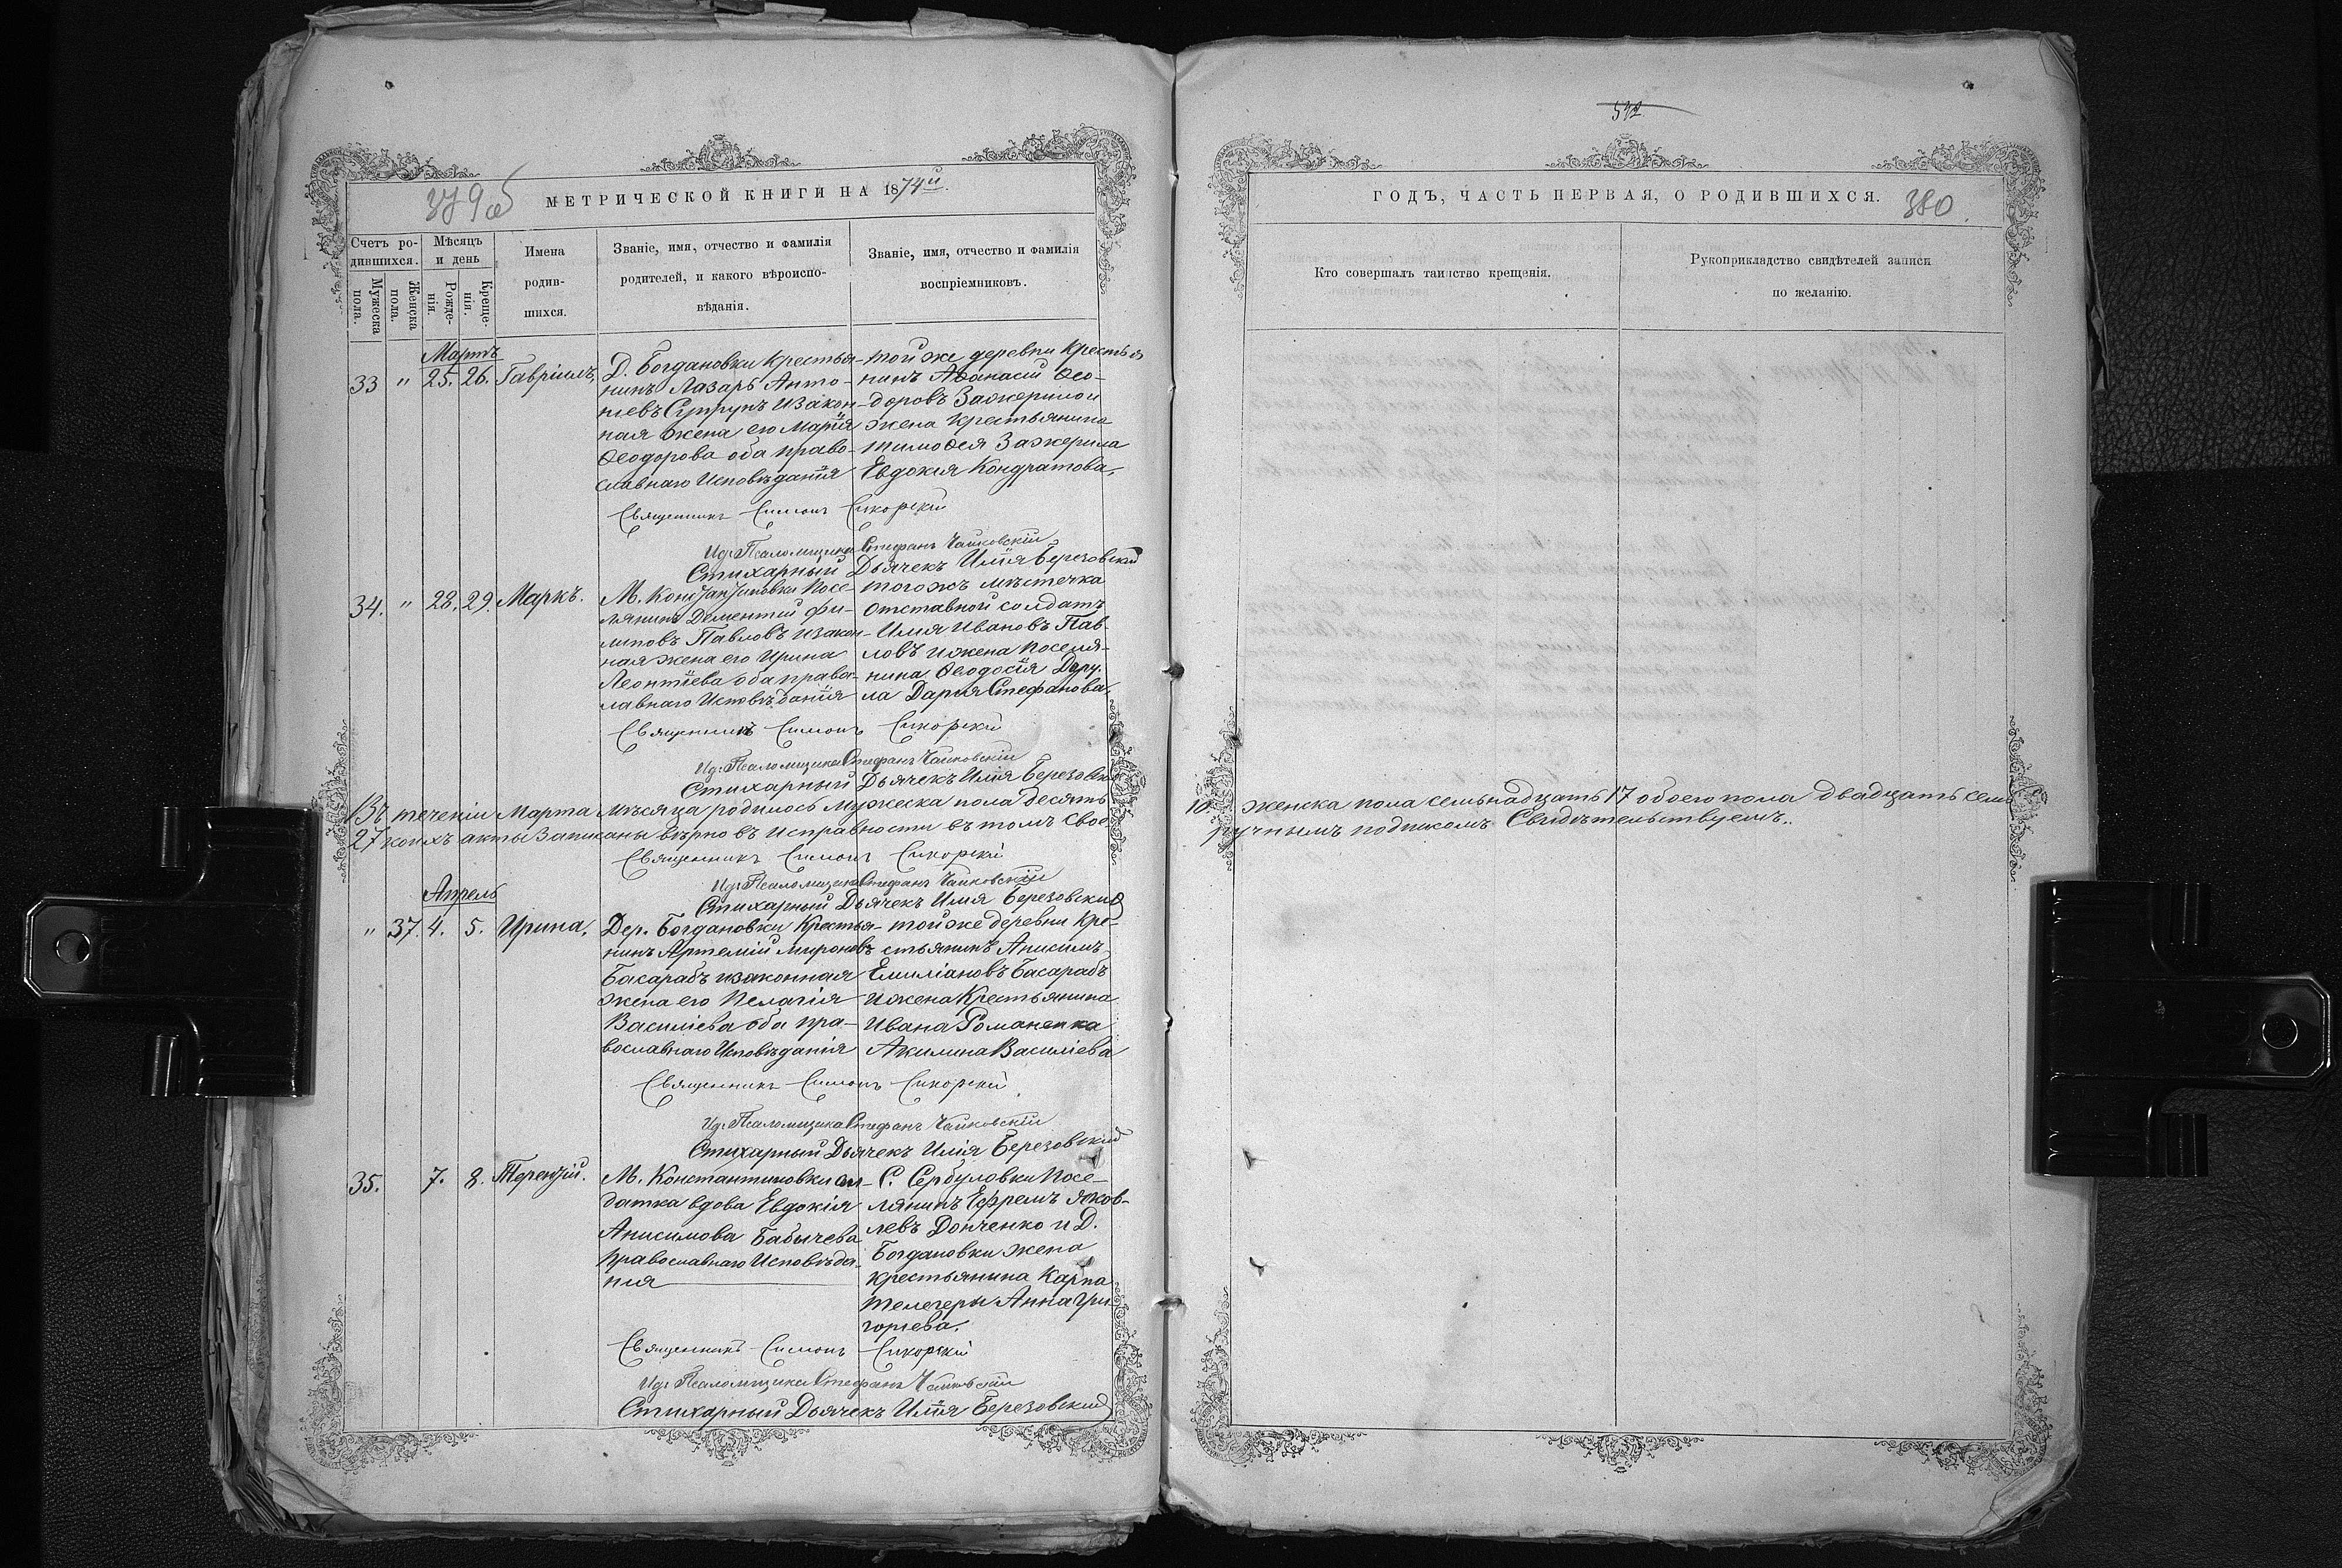 379 об
МЕТРИЧЕСКОЙ КНИГИ НА 1874й.
Счетъ ро-
дившихся.
Мужеска
пола.
Женска
пола.
Мѣсяцъ
и день
Рожде-
нія.
Креще-
нія.
Имена
родив-
шихся.
Званіе, имя, отчество и фамилія
родителей, и какого вѣроиспо-
вѣданія.
Званіе, имя, отчество и фамилія
воспріемниковъ.
Мартъ
33 " 25. 26. Гавріилъ,
Д. Богдановки Крестья-
нинъ Лазарь Анто-
ніевъ Супрунъ изакон-
ная жена его Марія
Ѳеодорова оба право-
славнаго Исповѣданія
той же деревни Крестья
нинъ Аѳанасій Ѳео-
доровъ Зажерило и
жена Крестьянина
Тимоѳея Зажерила
Евдокія Кондратова,
Священникъ Симонъ Сикорскій
Ид. Псаломщика Стефанъ Чайковскій
Стихарный Дьячекъ Илія Березовскій
34. " 28. 29. Маркъ.
М. Константиновки Посе-
лянинъ Дементій Фи-
липовъ Павловъ изакон-
ная жена его Ирина
Леонтіева оба правос-
лавнаго Исповѣданія
того жъ мѣстечка
Отставной солдатъ
Илия Ивановъ Пав-
ловъ ижена поселя-
нина Ѳеодосія Деру-
ла Дарія Стефанова,
Священникъ Симонъ Сикорскій
Ид. Псаломщика Стефанъ Чайковскій
Стихарный Дьячекъ Илія Березовскій
Въ теченіи Марта мѣсяца родилось мужеска пола десять
27 коихъ акты Записаны вѣрно въ исправности въ томъ своо
Священникъ Симонъ Сикорскій
Ид. Псаломщика Стефанъ Чайковскій
Стихарный Дьячекъ Илия Березовский
Апрель
" 37. 4. 5. Ирина,
Дер. Богдановки Крестья-
нинъ Артемій Мироновъ
Басарабъ изаконная
жена его Пелагія
Василіева оба пра-
вославнаго Исповѣданія
той же деревни Кре-
стьянинъ Анисимъ
Емиліановъ Басарабъ
ижена Крестьянина
Ивана Романенка
Акилина Василіева
Священникъ Симонъ Сикорскій
Ид. Псаломщика Стефанъ Чайковскій
Стихарный Дьячекъ Илія Березовский
35. 7. 8. Терентій.
М. Константиновки сол-
датка вдова Евдокія
Анисимова Бабычева
Православнаго Исповѣда-
нія
С. Сербуловки Посе-
лянинъ Ефремъ Яков-
левъ Донченко и Д.
Богдановки жена
крестьянина Карпа
Телегеры Анна Гри-
горіева.
Священникъ Симонъ Сикорскій
Ид. Псаломщика Стефанъ Чайковскій
Стихарный Дьячекъ Илія Березовский
542
ГОДЪ, ЧАСТЬ ПЕРВАЯ, О РОДИВШИХСЯ. 380.
Кто совершалъ таинство крещенія.
Рукоприкладство свидѣтелей записи
по желанію.
10. женска пола семьнадцать 17 обоего пола двадцать семь
ручнымъ подписомъ Свидѣтельствуемъ.